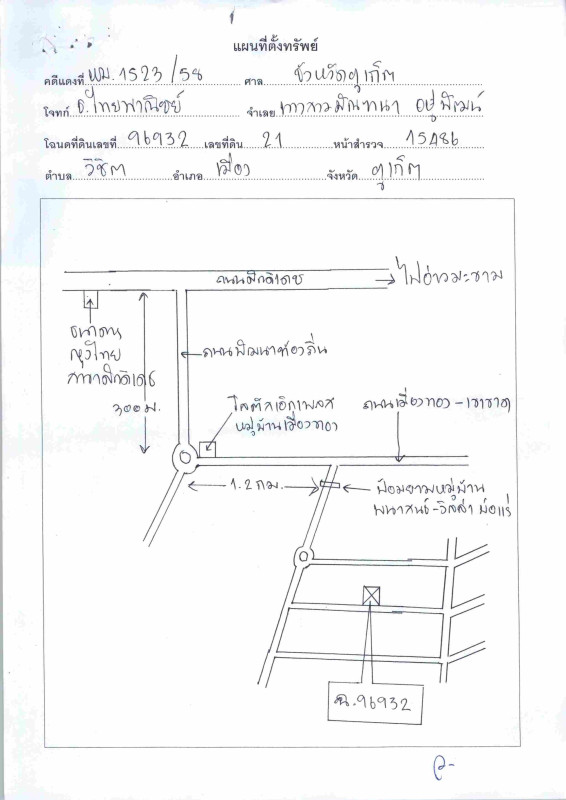 แผนที่ตั้งทรัพย์
คดีแดงที่ ผบ. 1523/58 ศาล จังหวัดภูเก็ต
โจทก์ ธ.ไทยพาณิชย์ จำเลย
โฉนดที่ดินเลขที่ 96932 เลขที่ดิน 21 หน้าสำรวจ 15486
ตำบล วิชิต อำเภอ เมือง จังหวัด ภูเก็ต
ถนนศักดิเดช
ไปอ่าวมะขาม
ธนาคาร
กรุงไทย
สาขาศักดิเดช
300 ม.
ถนนพัฒนาท้องถิ่น
โลตัสเอ็กเพลส
หมู่บ้านเมืองทอง
ถนนเมืองทอง-เขาขาด
1.2 กม.
ป้อมยามหมู่บ้าน
พนาสนธ์-วิลล่า บ่อแร่
ฉ.96932